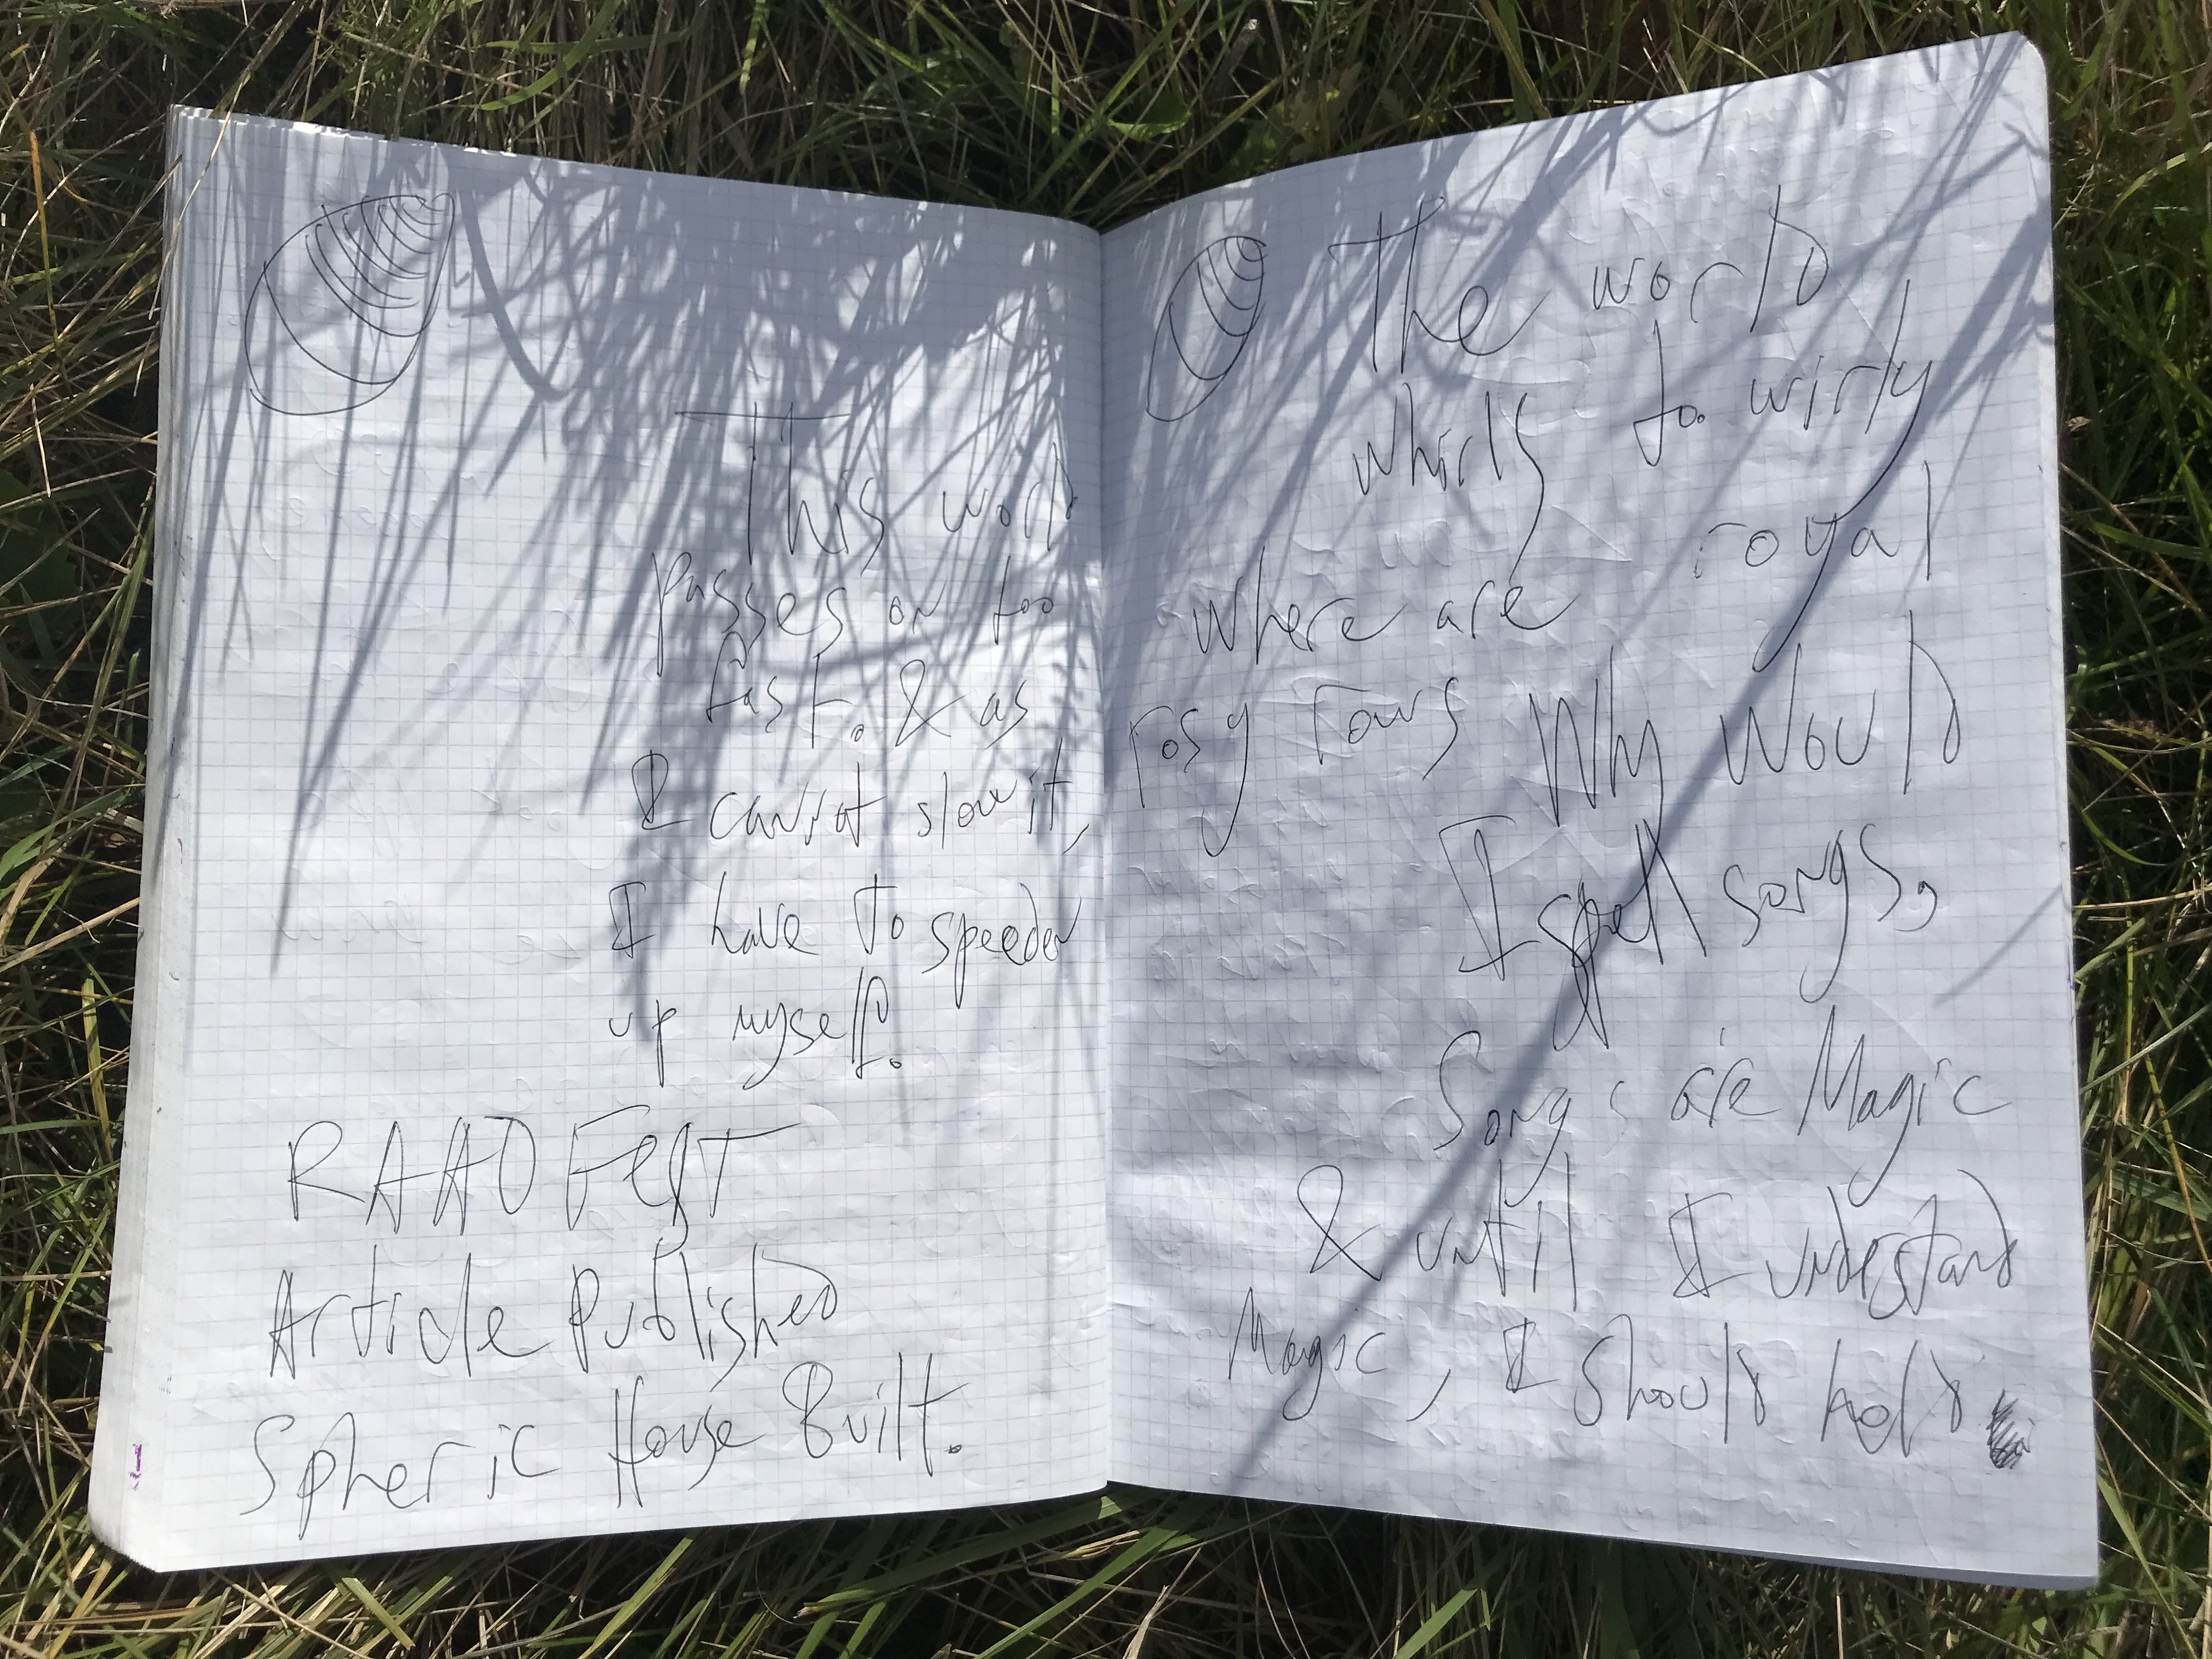 This world
passes on too
fast. & as
I cannot slow it,
I have to speed
up myself.
RAAD Fest
Article published
Spheric House Built.
The world
whirls
Where are royal
rosy
I would
I songs
Songs are Magic
& until I understand
Magic, I should hold